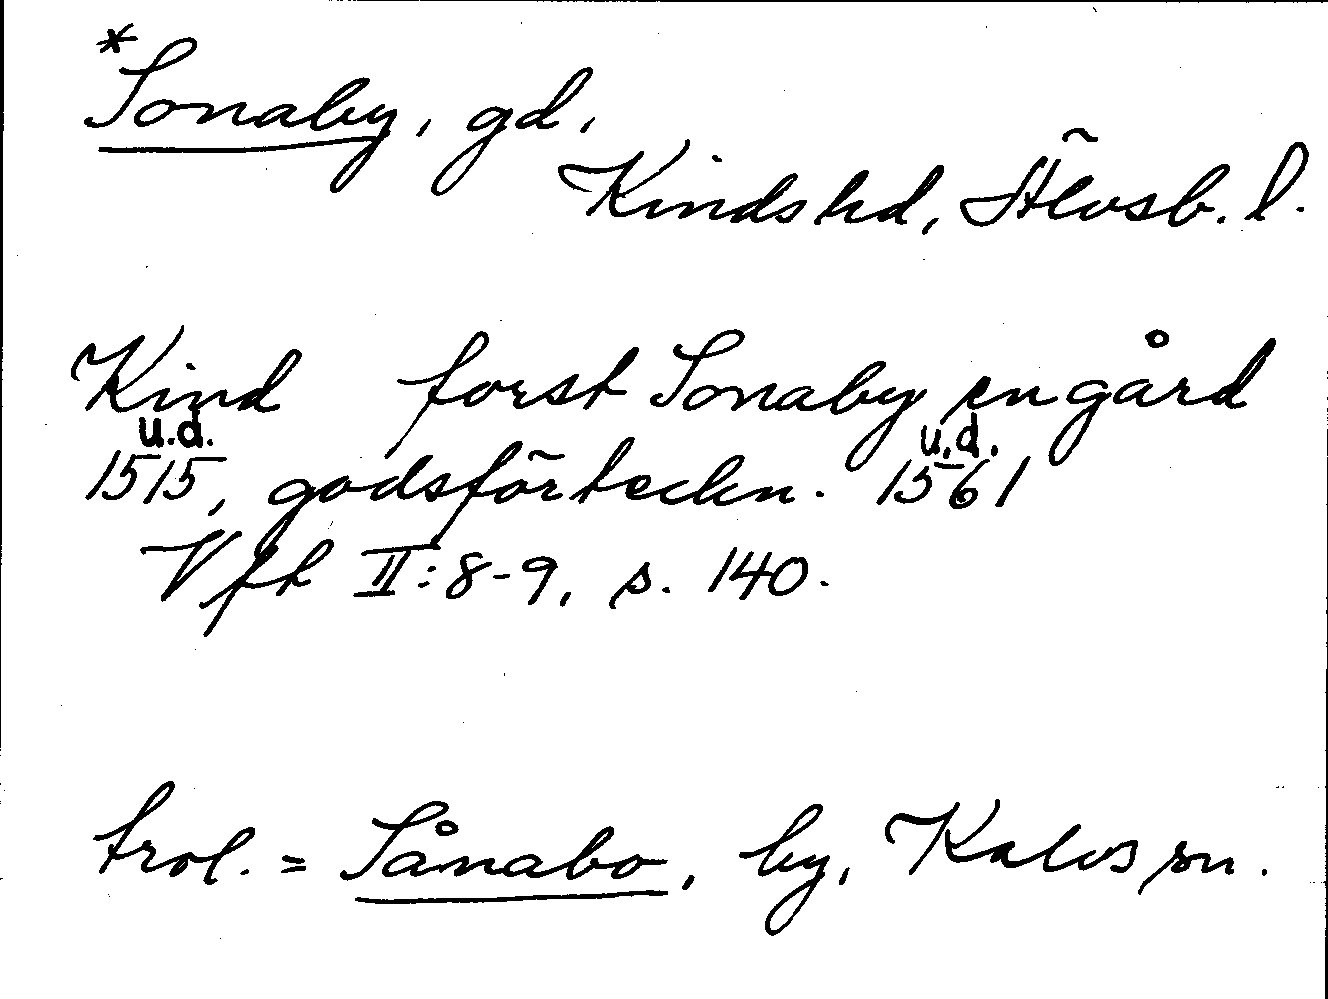 *Sonaby, gd.
Kinds hd, Älvsb. l.
Kind forst Sonaby en gård
u.d. u.d.
1515, godsförteckn. 1561
Vfh II:8-9, s. 140.
trol. = Sånabo, by, Kalvs sn.